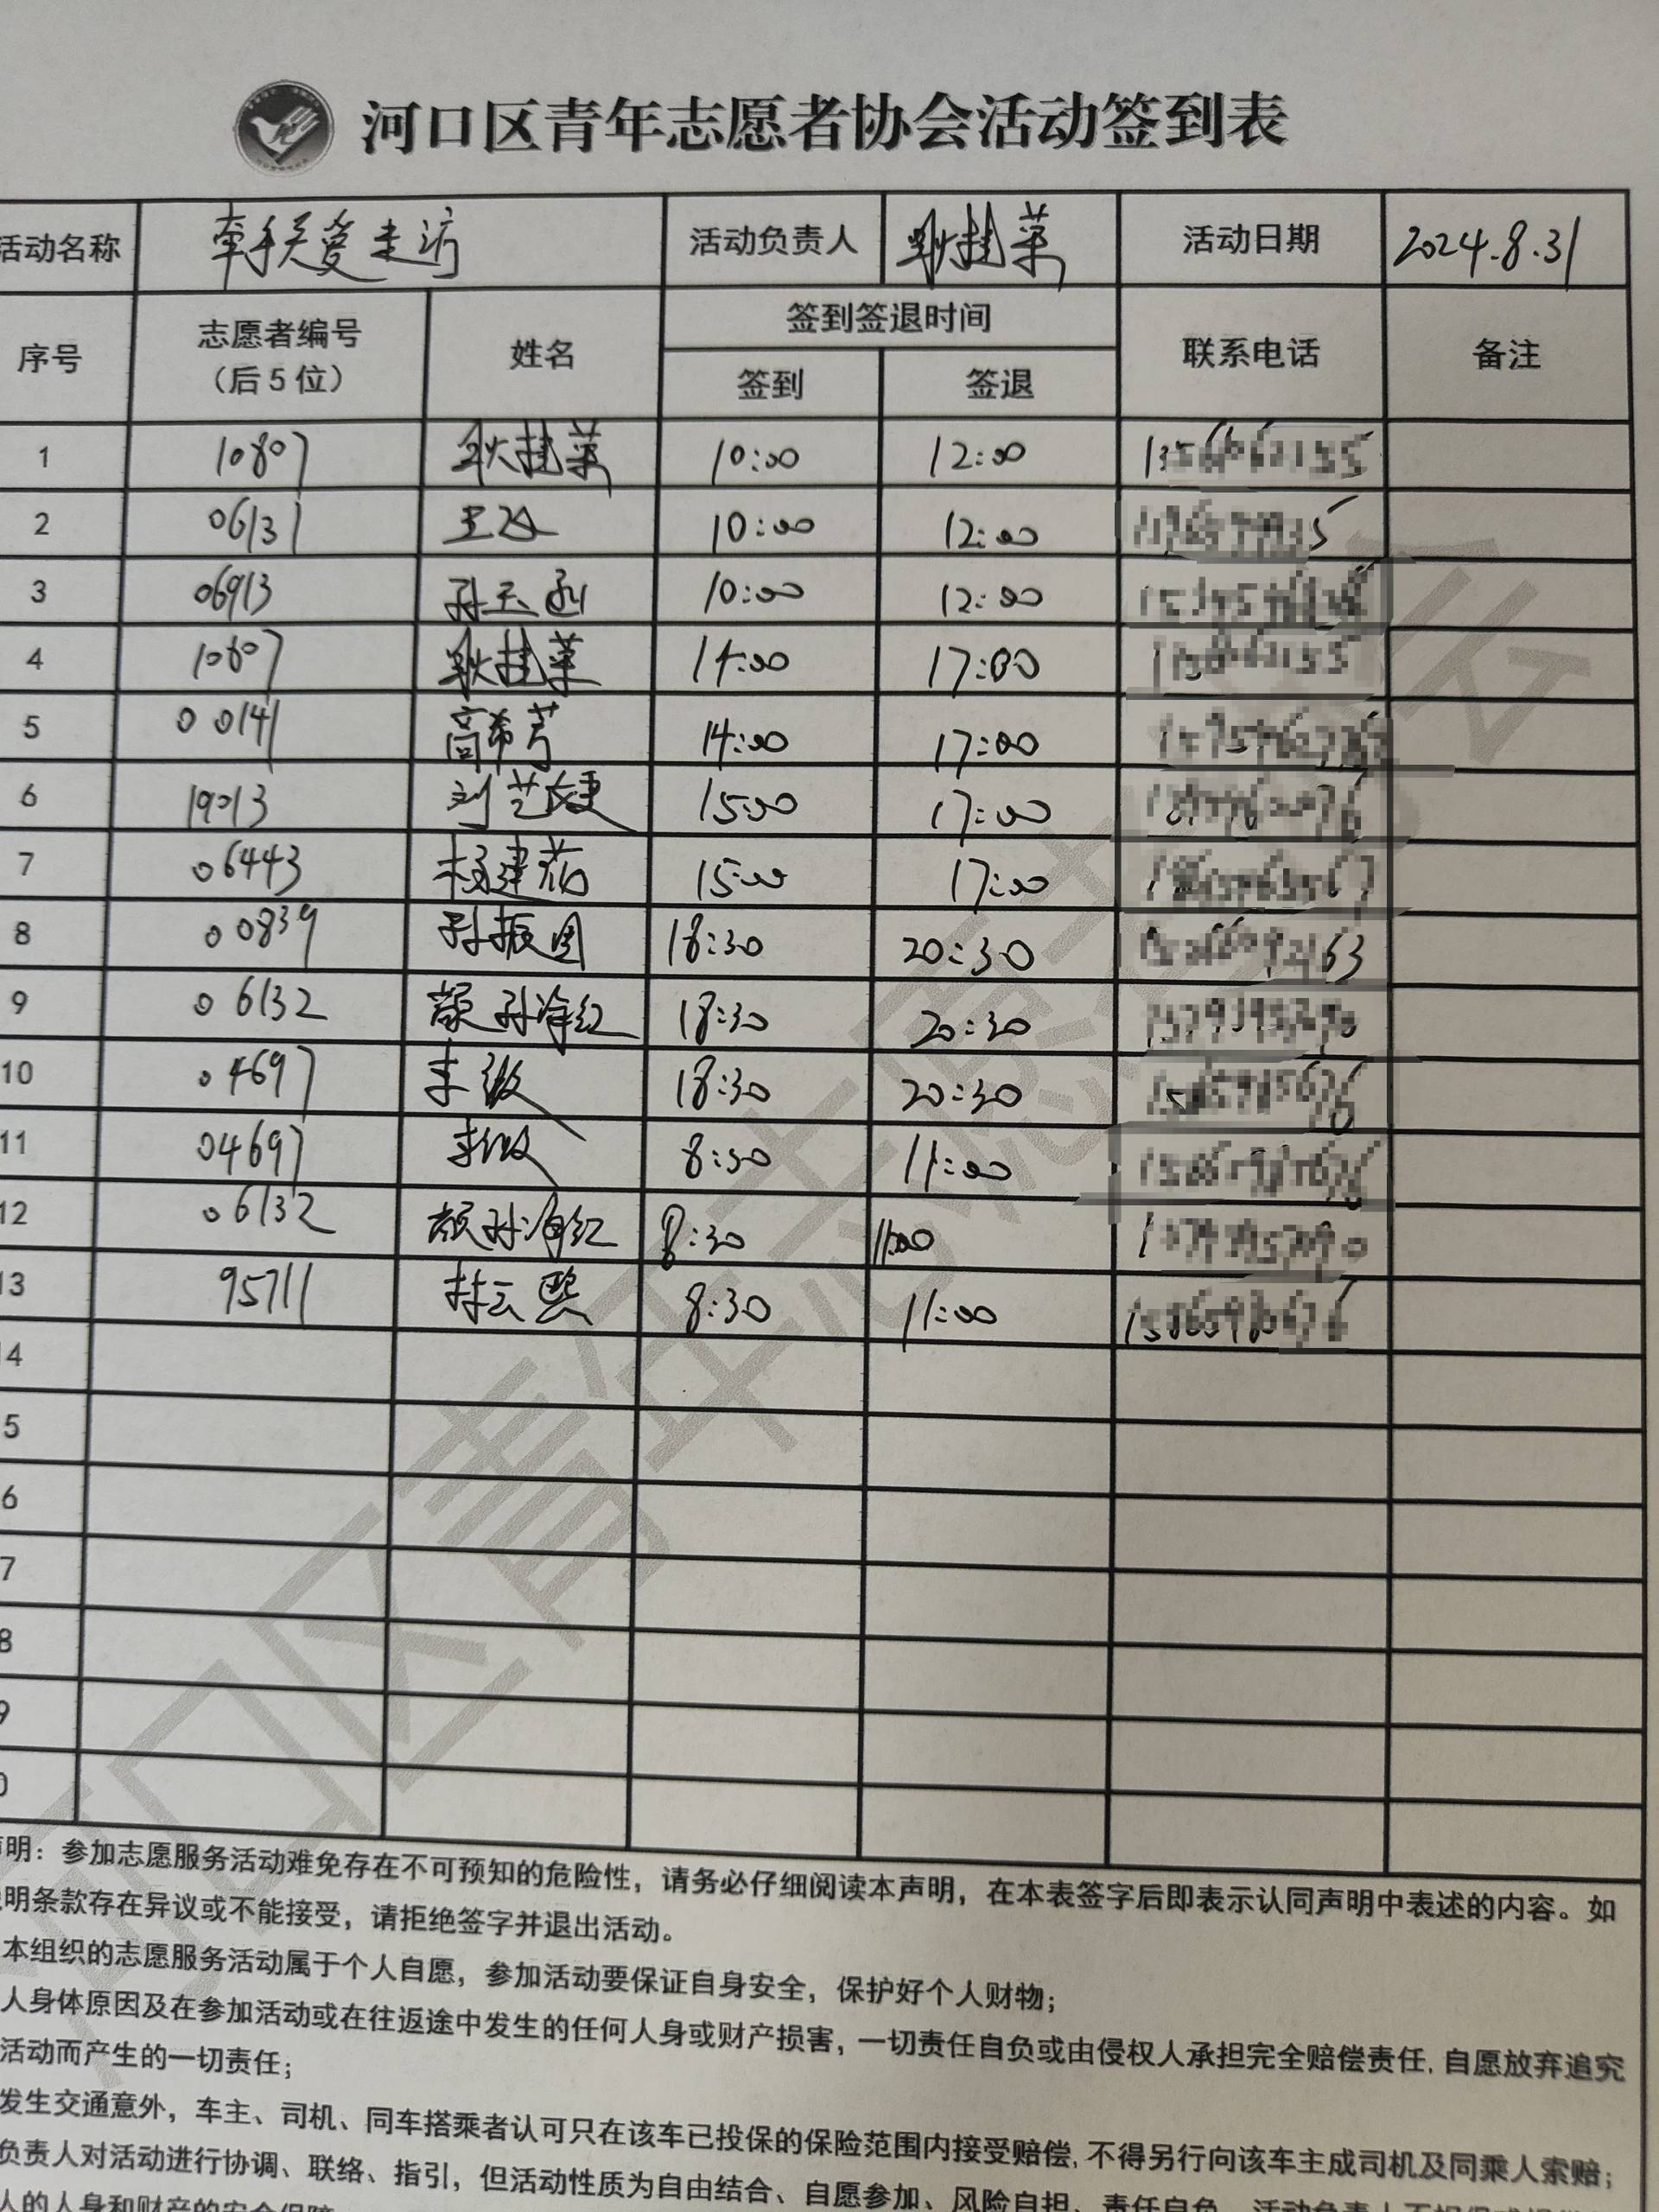 河口区青年志愿者协会活动签到表
活动名称 牵手关爱走访 活动负责人 耿桂菜 活动日期 2024.8.31
序号 志愿者编号（后5位） 姓名 签到签退时间 联系电话 备注
签到 签退
1 10807 耿桂菜 10:00 12:00
2 06131 王 10:00 12:00
3 06913 孙玉 10:00 12:00
4 10807 耿桂菜 14:00 17:00
5 00141 高希芳 14:00 17:00
6 19013 刘艺婕 15:00 17:00
7 06443 杨建茹 15:00 17:00
8 00839 孙振国 18:30 20:30
9 06132 颜孙海红 18:30 20:30
10 04697 18:30 20:30
11 04697 8:30 11:00
12 06132 颜孙海红 8:30 11:00
13 95711 林云熙 8:30 11:00
4
5
6
7
8
9
0
声明：参加志愿服务活动难免存在不可预知的危险性，请务必仔细阅读本声明，在本表签字后即表示认同声明中表述的内容。如
明条款存在异议或不能接受，请拒绝签字并退出活动。
本组织的志愿服务活动属于个人自愿，参加活动要保证自身安全，保护好个人财物；
人身体原因及在参加活动或在往返途中发生的任何人身或财产损害，一切责任自负或由侵权人承担完全赔偿责任,自愿放弃追究
活动而产生的一切责任；
发生交通意外，车主、司机、同车搭乘者认可只在该车已投保的保险范围内接受赔偿,不得另行向该车主成司机及同乘人索赔；
负责人对活动进行协调、联络、指引，但活动性质为自由结合、自愿参加、风险自担、责任自负
人的人身和财产的安全保障